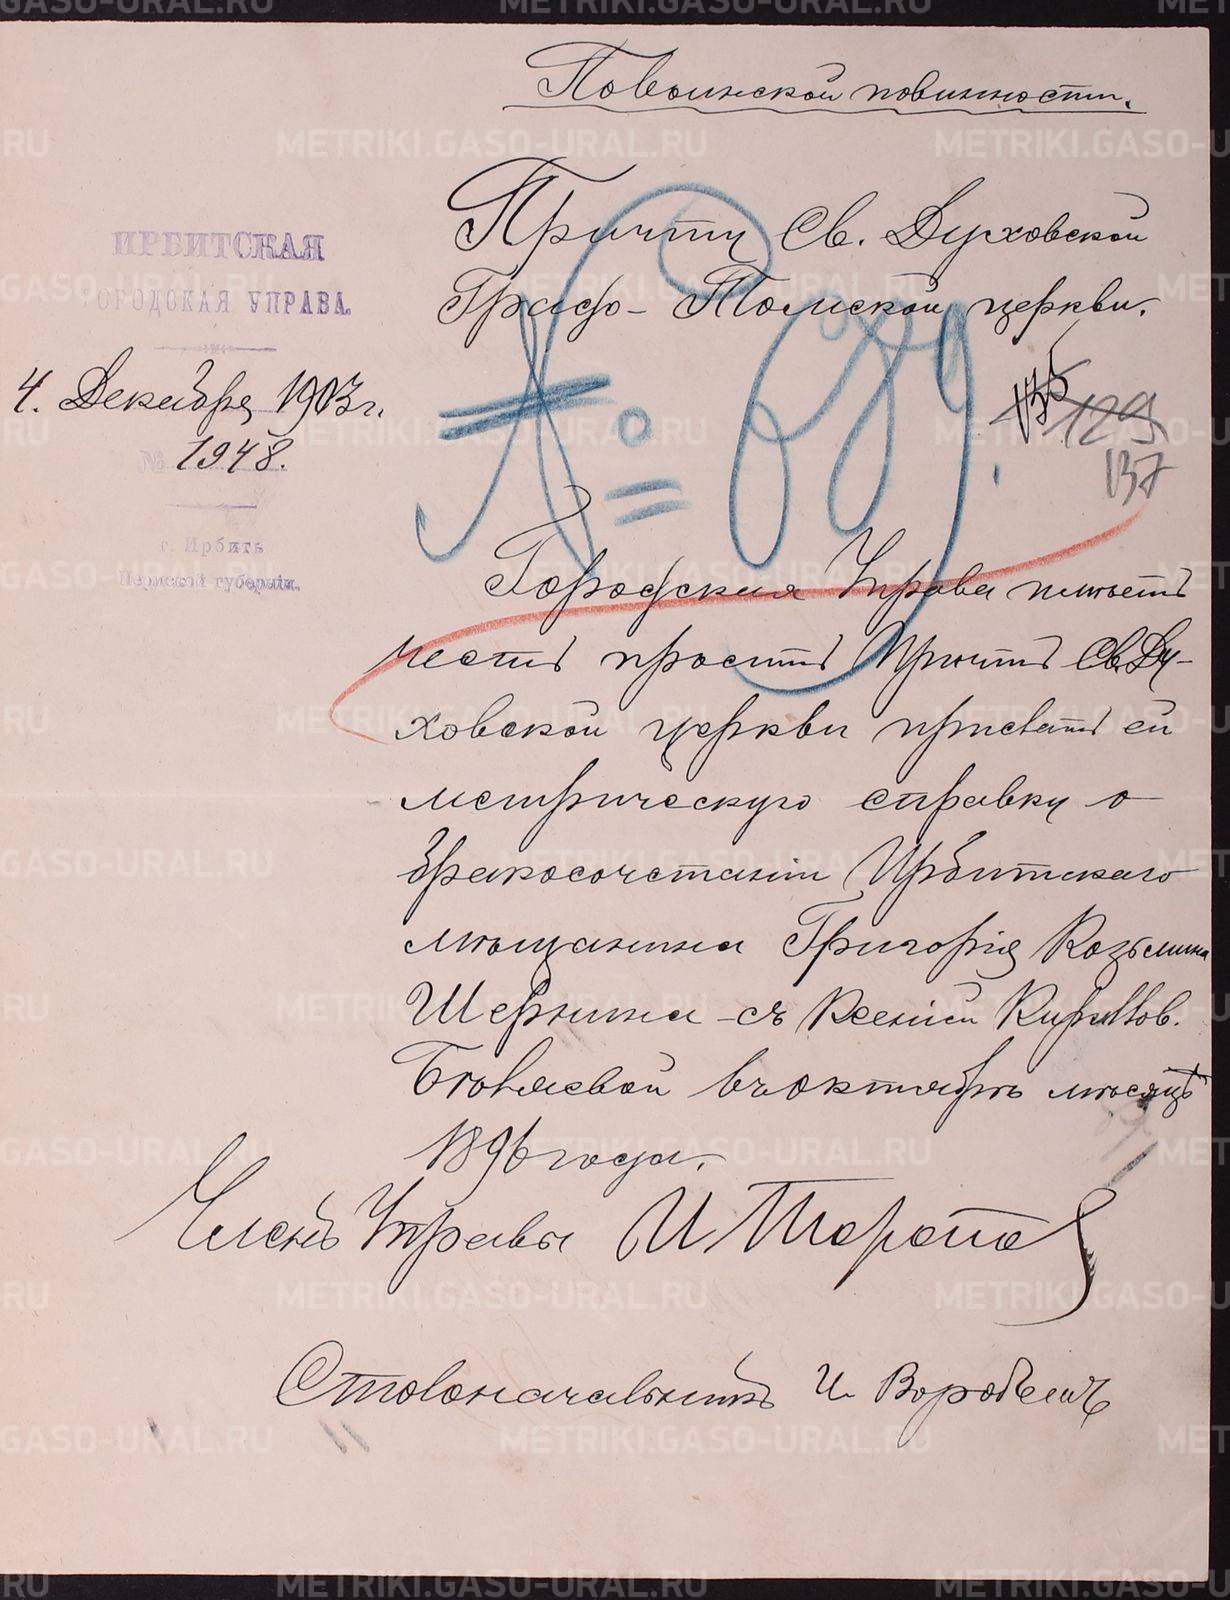 По воинской повинности.
ИРБИТСКАЯ
ГОРОДСКАЯ УПРАВА.
4. Декабря 1903 г.
№ 1948.
г. Ирбить
Пермской губерніи.
Причту Св. Духовской
Градо- Томской церкви.
№ 689.
135 129
137
Городская Управа имѣетъ
честь просить Причтъ Св. Ду-
ховской церкви прислать ей
метрическую справку о
бракосочетаніи Ирбитскаго
мѣщанина Григорія Козьмина
Шернина съ Ксеніей Кириллов.
въ октябрѣ мѣсяцѣ
1896 года.
Членъ Управы И
Столоначальникъ И. Воробьевъ
METRIKI.GASO-URAL.RU